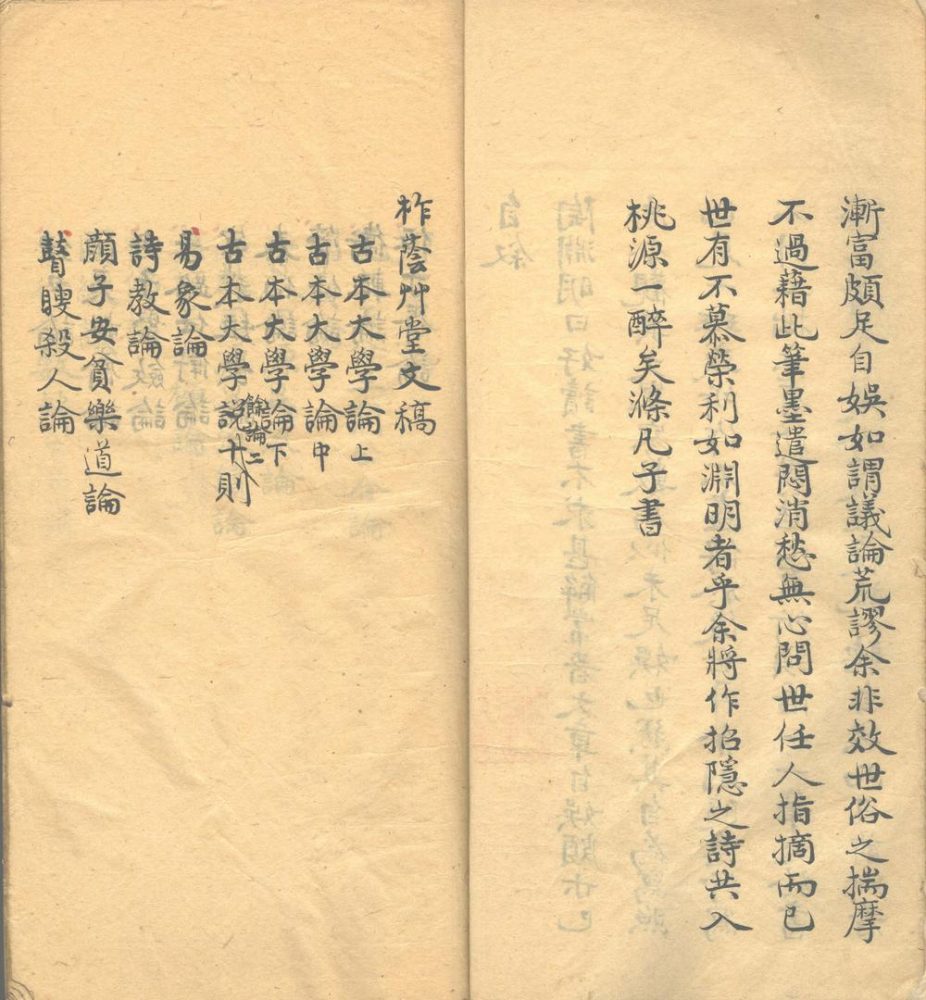 漸富頗足自娛如謂議論荒謬余非效世俗之揣摩
不過藉此筆墨遣悶消愁無心問世任人指摘而已
世有不慕榮利如淵明者乎余將作招隱之詩共入
桃源一醉矣滌凡子書
柞蔭艸堂文稿
古本大學論上
古本大學論中
古本大學論下
餘論二
古本大學說十則
易象論
詩教論
顏子安貧樂道論
瞽瞍殺人論
自叙
陶淵明曰好讀書不求甚解常著文章自娛頗示己